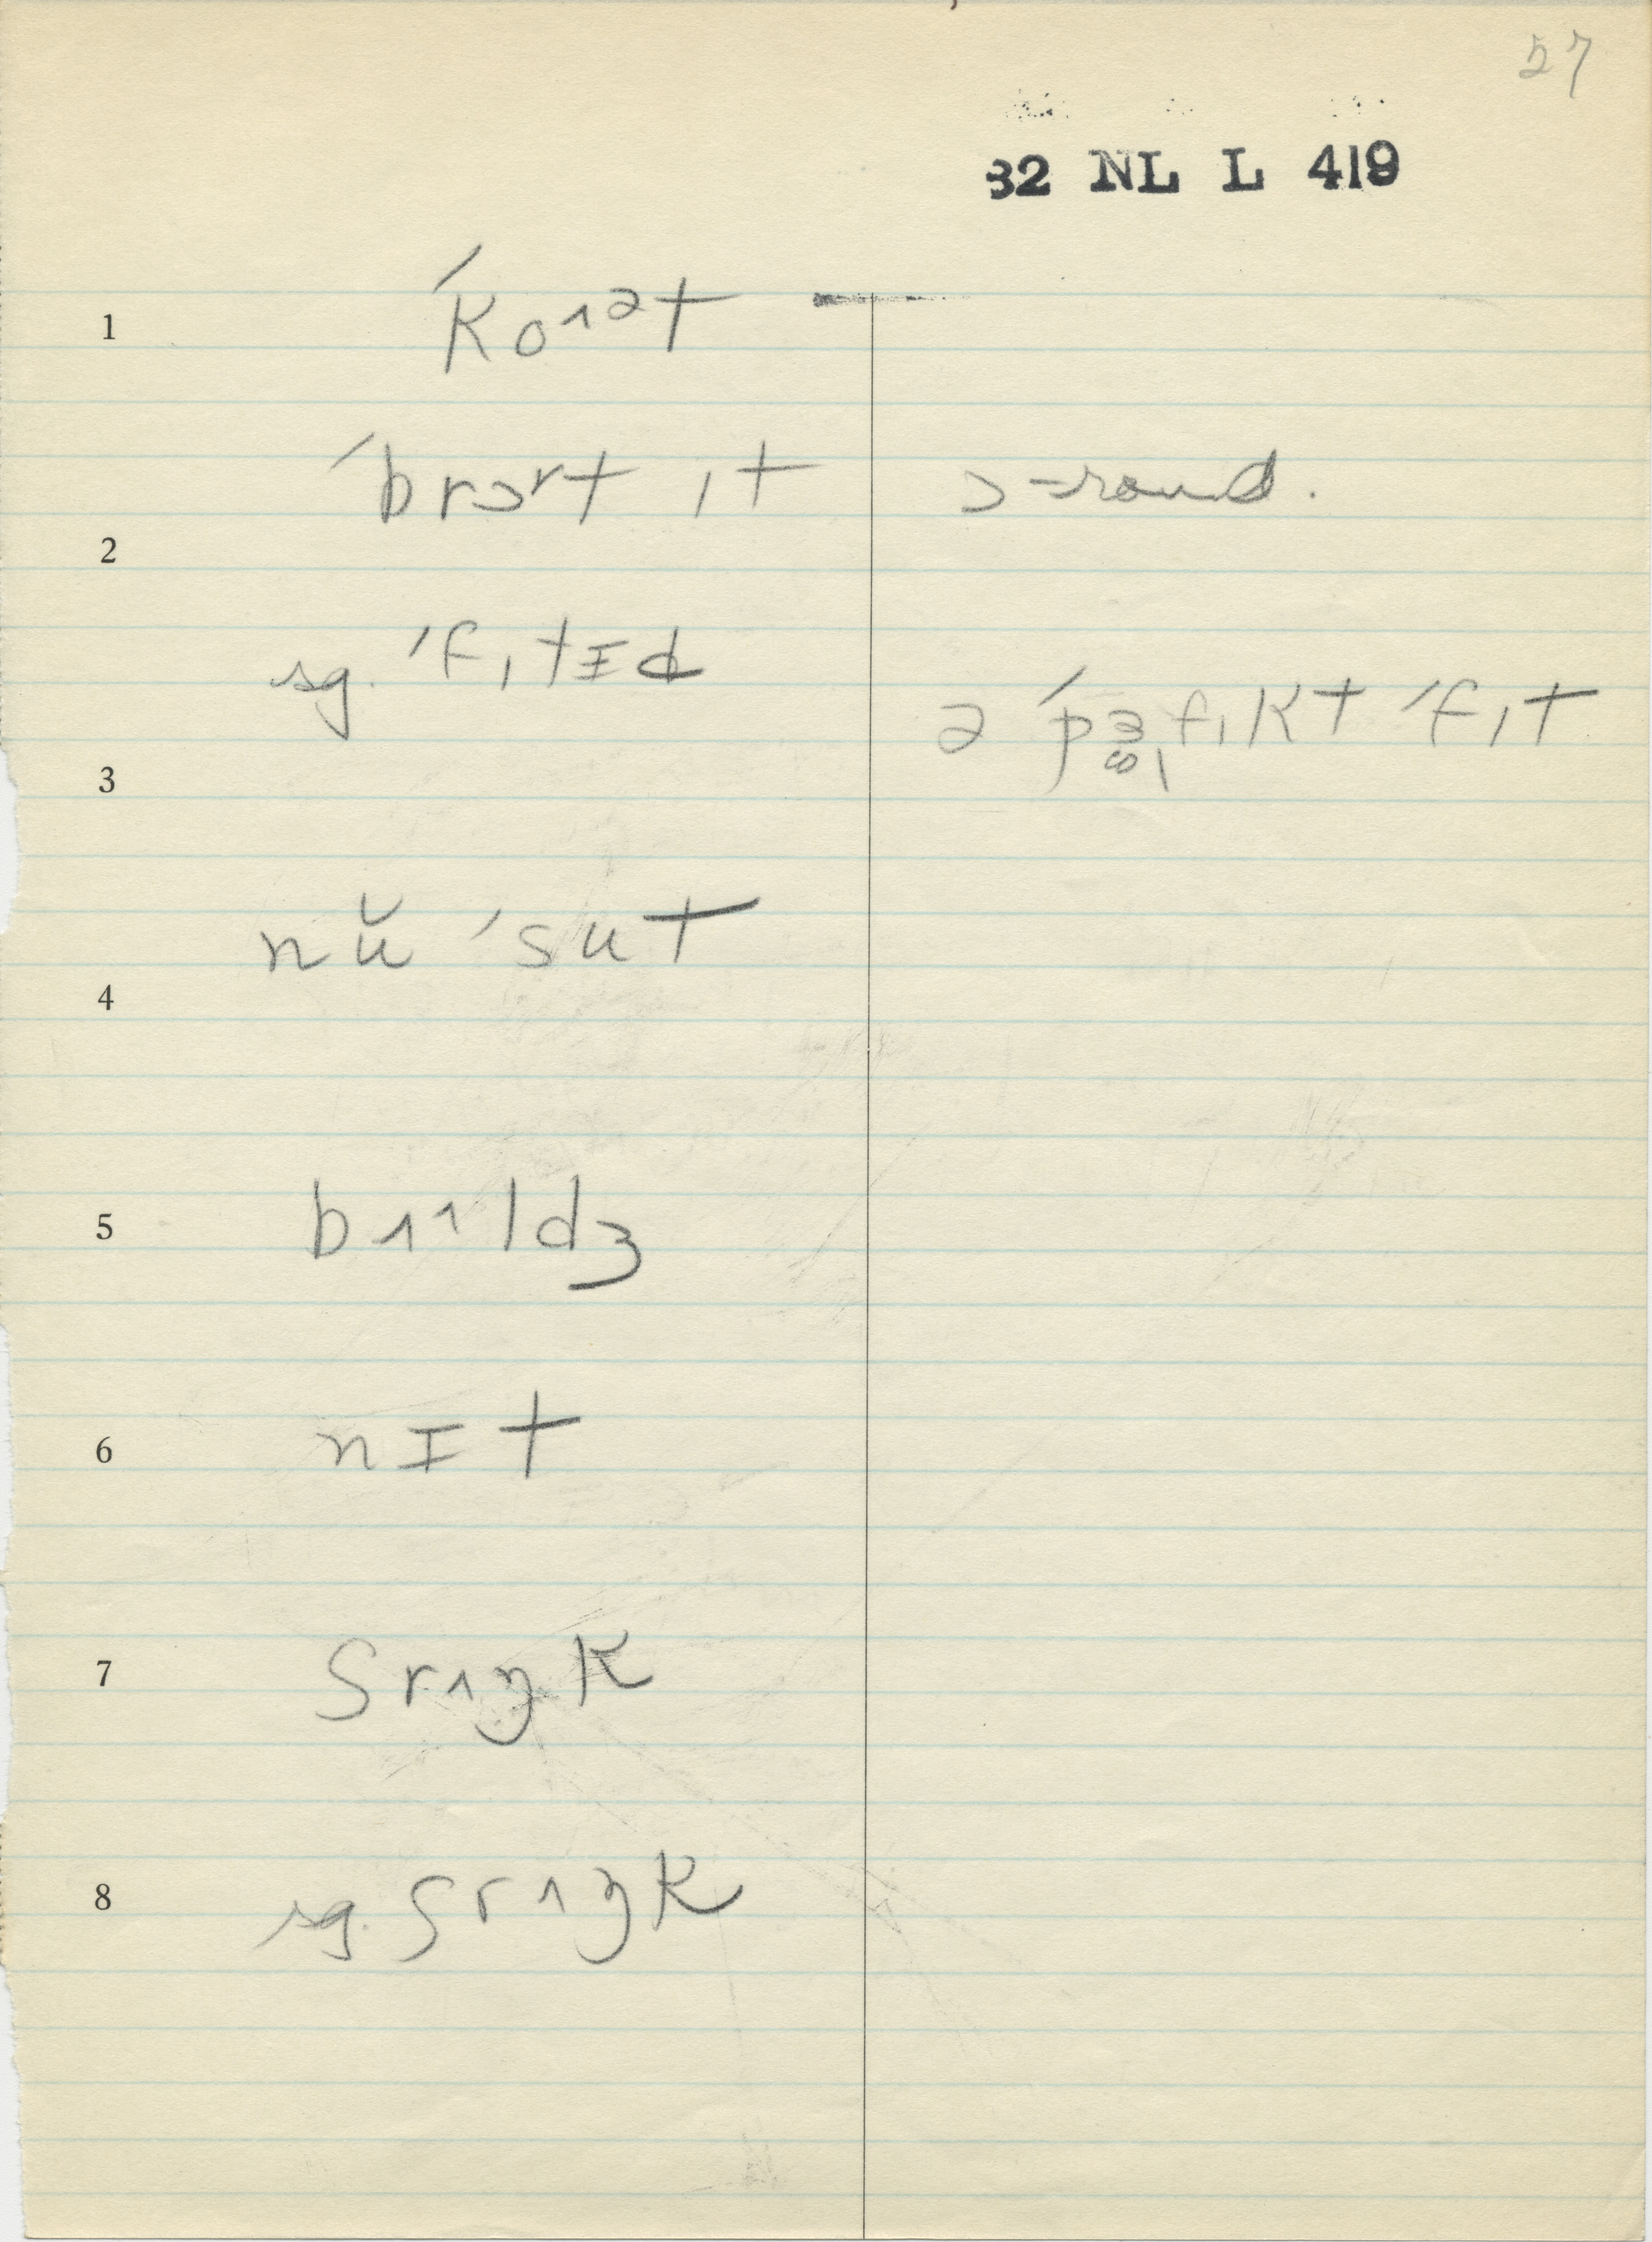 27
32 NL L 419
1 ˈkoᶦᵊt
ˈbrɔʳt ɪt ɔ-round.
2
sg. ˈfɪtɪd
ə ˈpɜfɪkt ˈfɪt
3
nŭ ˈsut
4
5 bɪᶦldʒ
6 nɪt
7 srɪŋk
8 sg. srɪŋk